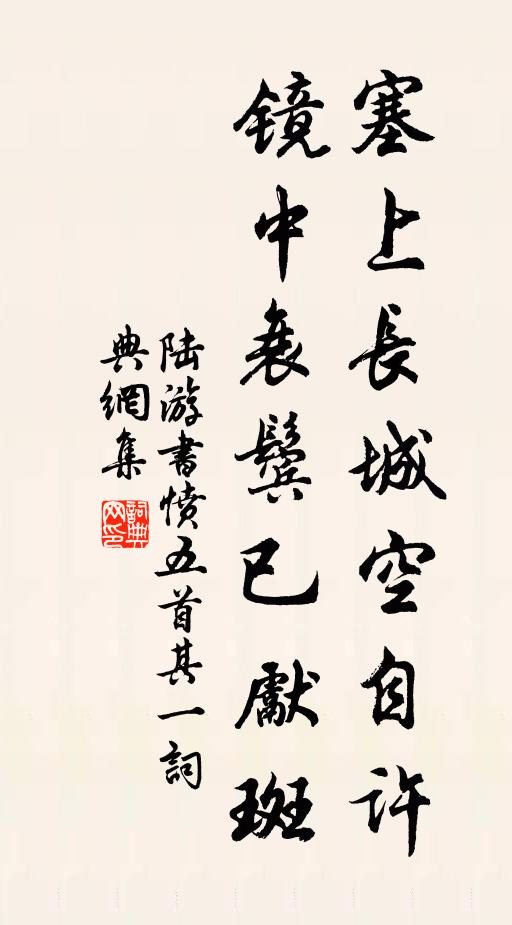 塞上長城空自許
鏡中衰鬢已獻斑
陸游書憤五首其一詞
典網集
詞典
网印